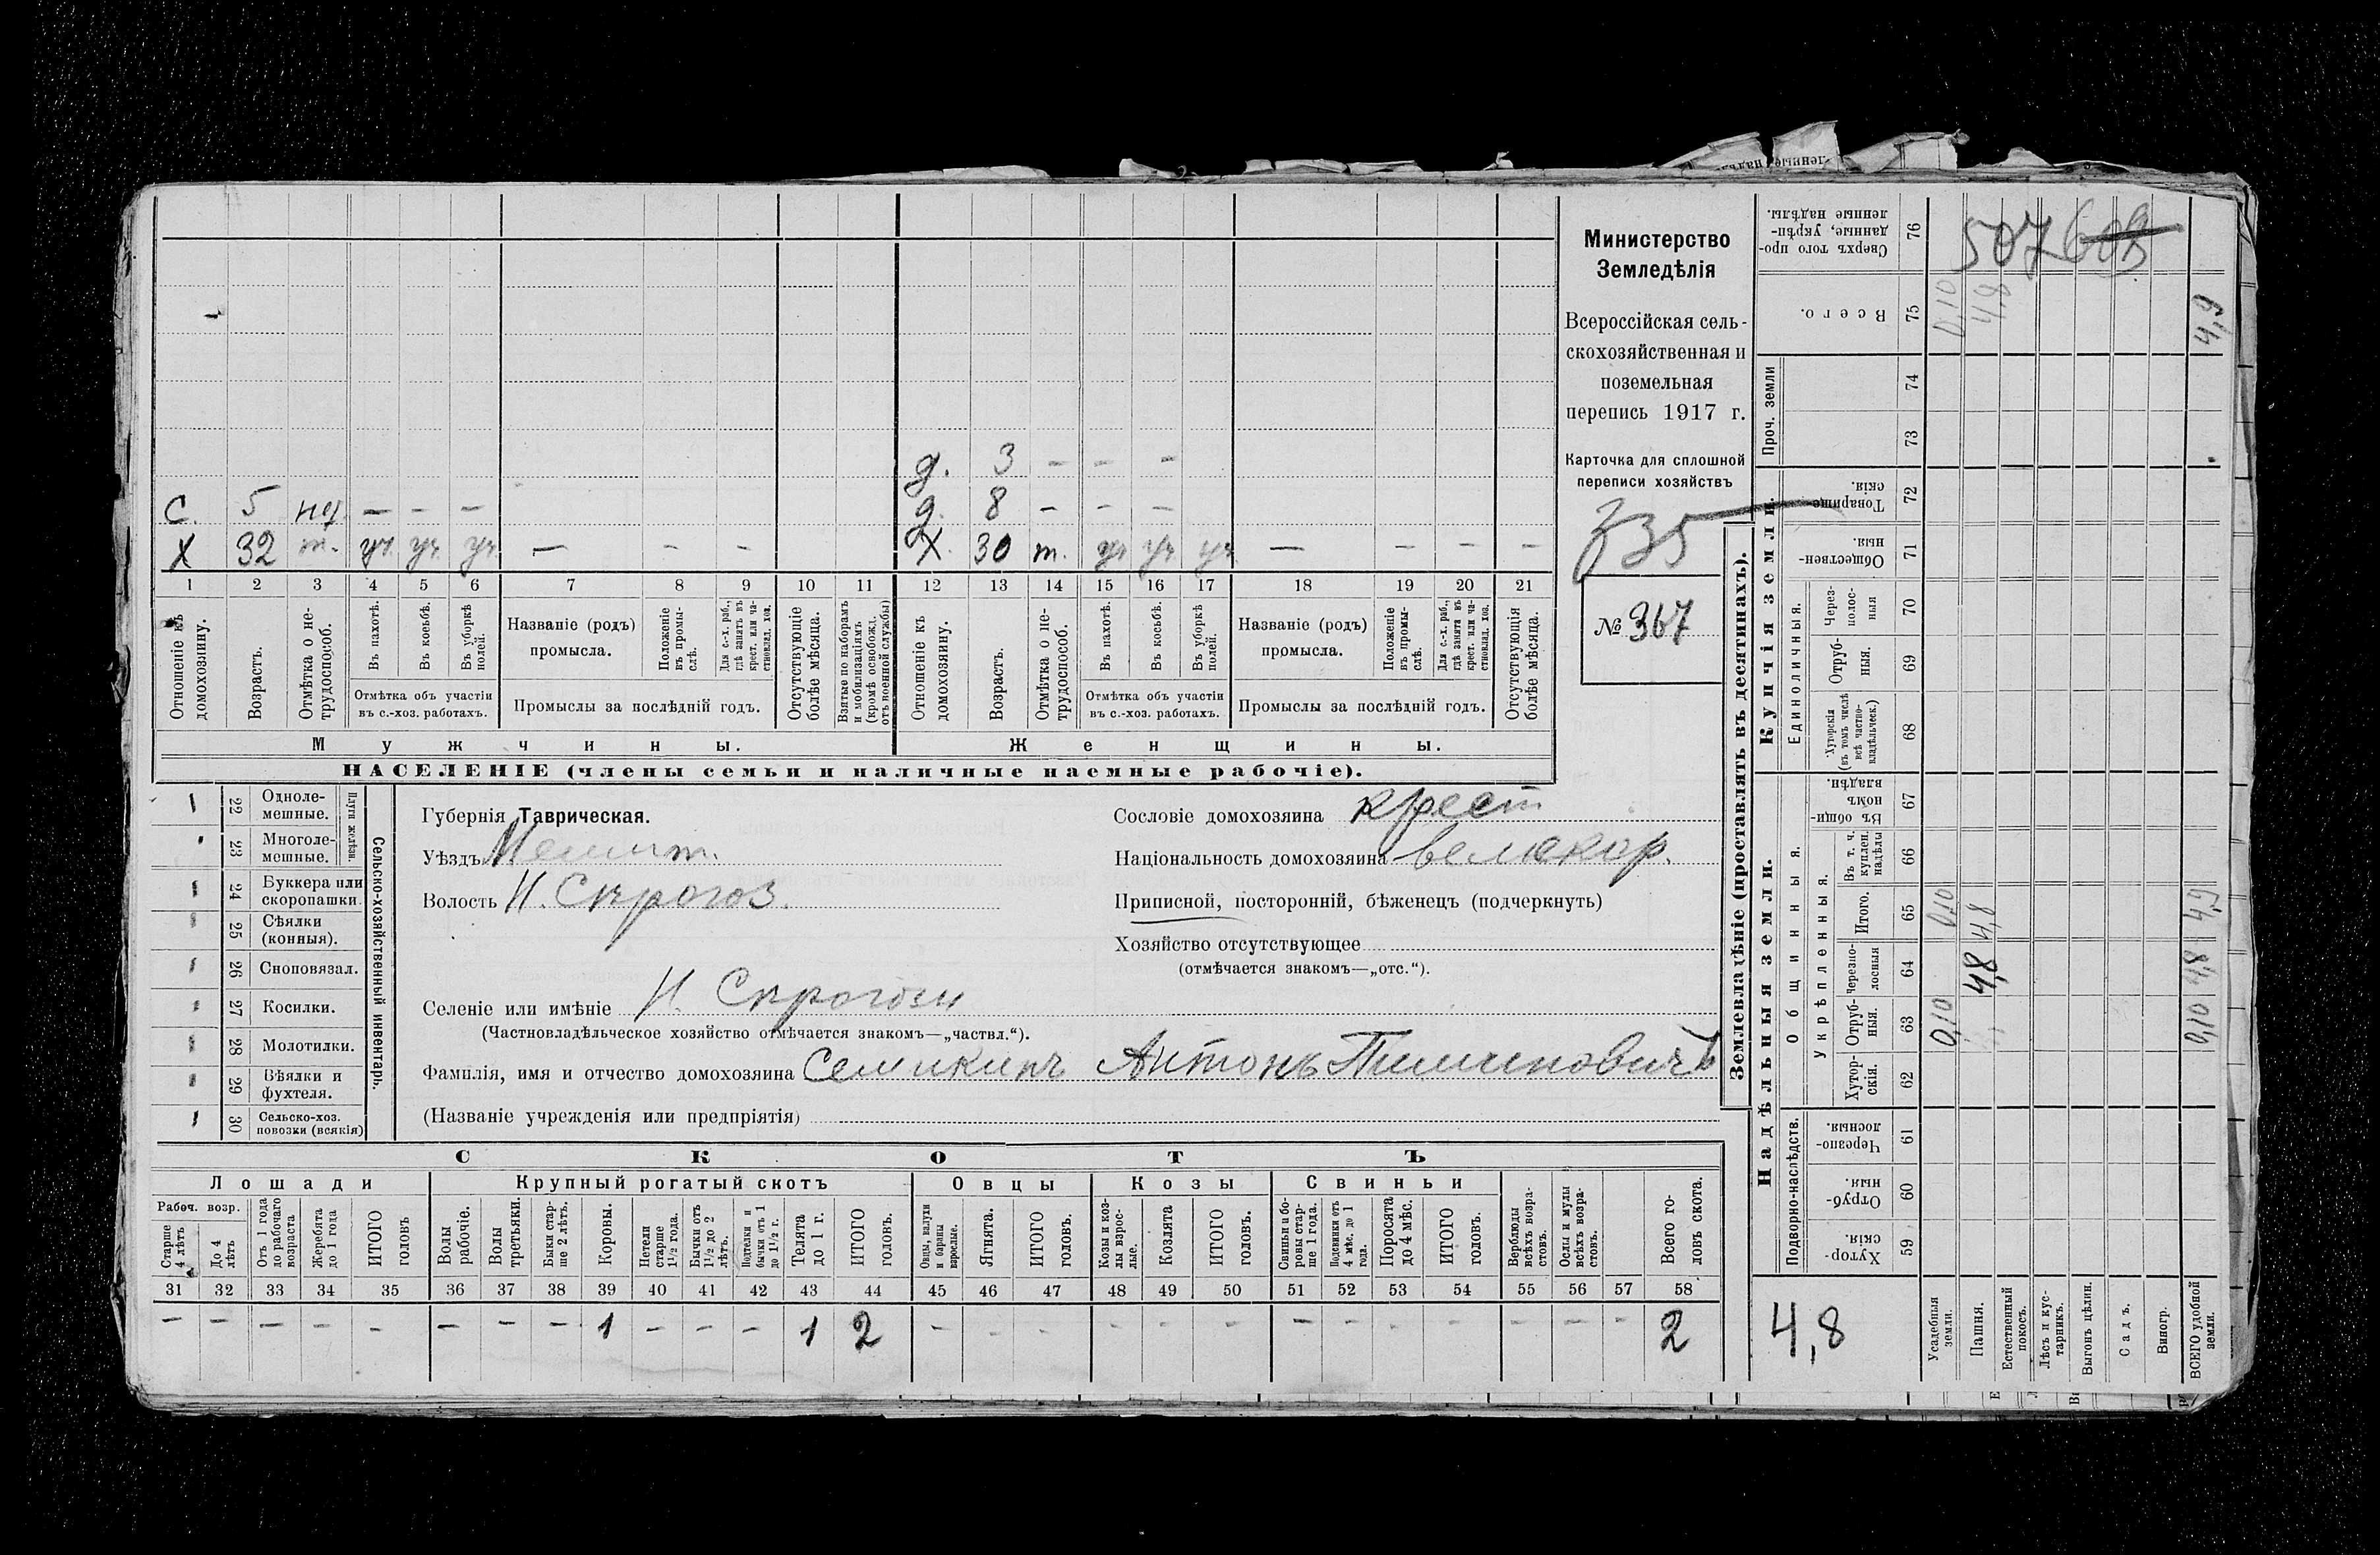 д. 3 – – –
с. 5 нт. – – –
д. 8 – – –
Х 32 т. уч. уч. уч. – – –
Х. 30 т. уч уч уч – – – –
1 2 3 4 5 6 7 8 9 10 11 12 13 14 15 16 17 18 19 20 21
Отношеніе къ домохозяину.
Возрастъ.
Отмѣтка о нетрудоспособ.
Въ пахотѣ.
Въ косьбѣ.
Въ уборкѣ полей.
Отмѣтка объ участіи въ с.-хоз. работахъ.
Названіе (родъ) промысла.
Положеніе въ промыслѣ.
Для с.-х. раб., гдѣ занятъ въ крест. или частновлад. хоз.
Промыслы за послѣдній годъ.
Отсутствующіе болѣе мѣсяца.
Взятые по наборамъ и мобилизаціямъ (кромѣ освобожд. отъ военной службы)
Отношеніе къ домохозяину.
Возрастъ.
Отмѣтка о нетрудоспособ.
Въ пахотѣ.
Въ косьбѣ.
Въ уборкѣ полей.
Отмѣтка объ участіи въ с.-хоз. работахъ.
Названіе (родъ) промысла.
Положеніе въ промыслѣ.
Для с.-х. раб., гдѣ занята въ крест. или частновлад. хоз.
Промыслы за послѣдній годъ.
Отсутствующія болѣе мѣсяца.
Мужчины. Женщины.
НАСЕЛЕНІЕ (члены семьи и наличные наемные рабочіе).
Министерство
Земледѣлія
Всероссійская сель-
скохозяйственная и
поземельная
перепись 1917 г.
Карточка для сплошной
переписи хозяйствъ
335
№ 367
Сельско-хозяйственный инвентарь.
Плуги желѣзн.
22 Одноле-
мешные.
23 Многоле-
мешные.
24 Буккера или
скоропашки.
25 Сѣялки
(конныя).
26 Сноповязал.
27 Косилки.
28 Молотилки.
29 Вѣялки и
фухтеля.
30 Сельско-хоз.
повозки (всякія)
Губернія Таврическая.
Уѣздъ Мелит.
Волость Н. Сѣрогоз.
Селеніе или имѣніе Н. Сѣрогозы
(Частновладѣльческое хозяйство отмѣчается знакомъ—„частвл.“).
Фамилія, имя и отчество домохозяина Семикинъ Антонъ Пименовичъ
(Названіе учрежденія или предпріятія)
Сословіе домохозяина крест
Національность домохозяина великор.
Приписной, посторонній, бѣженецъ (подчеркнуть)
Хозяйство отсутствующее
(отмѣчается знакомъ—„отс.“).
СКОТЪ
Лошади Крупный рогатый скотъ Овцы Козы Свиньи
Рабоч. возр.
Старше 4 лѣтъ
До 4 лѣтъ
Отъ 1 года до рабочаго возраста
Жеребята до 1 года
ИТОГО головъ
Волы рабочіе.
Волы третьяки.
Быки старше 2 лѣтъ.
Коровы.
Нетели старше 1½ года.
Бычки отъ 1½ до 2 лѣтъ.
Подтелки и бычки отъ 1 до 1½ г.
Телята до 1 г.
ИТОГО головъ.
Овцы, валухи и бараны взрослые.
Ягнята.
ИТОГО головъ.
Козы и козлы взрослые.
Козлята
ИТОГО головъ.
Свиньи и боровы старше 1 года.
Подсвинки отъ 4 мѣс. до 1 года.
Поросята до 4 мѣс.
ИТОГО головъ.
Верблюды всѣхъ возрастовъ.
Ослы и мулы всѣхъ возрастовъ.
Всего головъ скота.
31 32 33 34 35 36 37 38 39 40 41 42 43 44 45 46 47 48 49 50 51 52 53 54 55 56 57 58
– – – – – – – – 1 – – – 1 2 – – – – – – – – – – – – – 2
Землевладѣніе (проставлять въ десятинахъ).
Купчія земли.
Надѣльныя земли.
Сверхъ того проданные, укрѣпленные надѣлы. 76 507 608
Всего. 75 0,10 4,8 4,9
Проч. земли 74
73
Товарищескія. 72
Общественныя. 71
Единоличныя.
Черезполосныя 70
Отрубныя. 69
Хуторскія (въ томъ числѣ всѣ частновладѣльческ.) 68
Общинныя.
Въ общинномъ владѣн. 67
Укрѣпленныя.
Въ т. ч. куплен. надѣлы 66
Итого. 65 0,10 4,8 4,9
Черезполосныя 64 4,8 4,8
Отрубныя. 63 0,10 0,10
Хуторскія. 62
Подворно-наслѣдств.
Черезполосныя. 61
Отрубныя. 60
Хуторскія. 59
4,8
Усадебныя земли.
Пашня.
Естественный покосъ.
Лѣсъ и кустарникъ.
Выгонъ цѣлин.
Садъ.
Виногр.
ВСЕГО удобной земли.